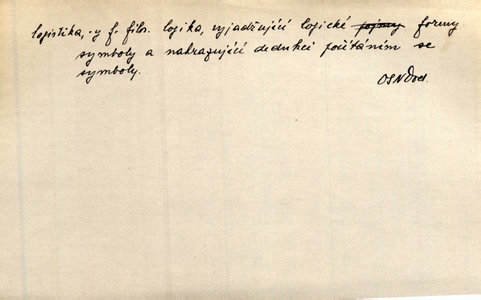 logistika, -y f. filos. logika, vyjadřující logické pojmy formy
symboly a nahrazující dedukci počítáním se
symboly.
OSNDod.